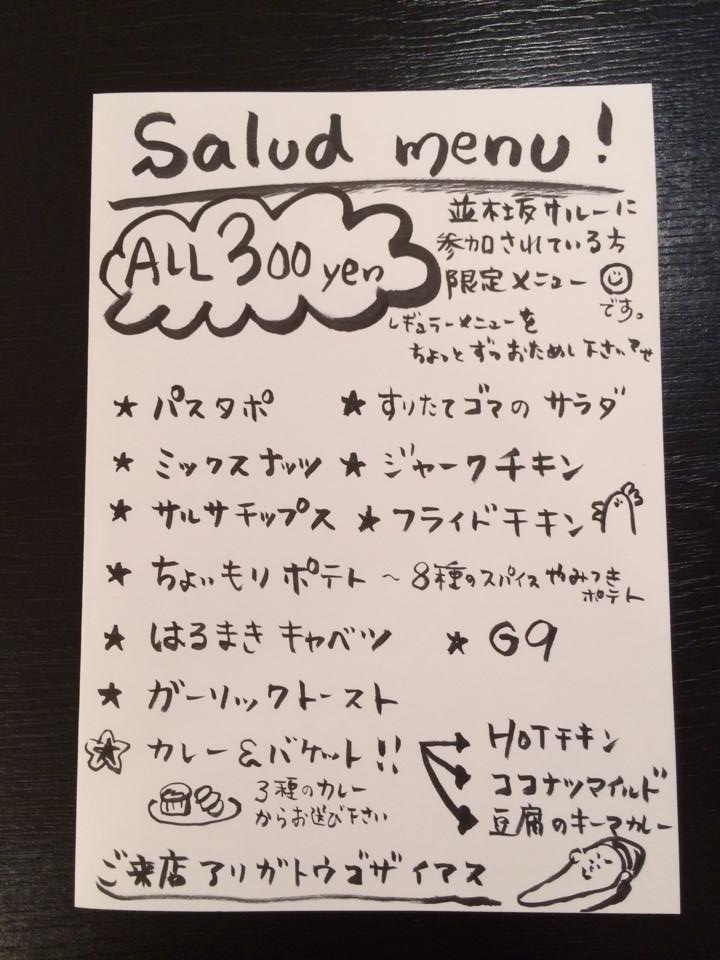 Salud menu!
ALL 300 yen
並木坂サルーに
参加されている方
限定メニュー
です。
レギュラーメニューを
ちょっとずつおためし下さいませ
★ パスタポ ★ すりたてゴマの サラダ
★ ミックスナッツ ★ ジャークチキン
★ サルサチップス ★ フライドチキン
★ ちょいもりポテト 〜 8種のスパイス やみつき
ポテト
★ はるまきキャベツ ★ G9
★ ガーリックトースト
★ カレー&バケット!! HOTチキン
ココナツマイルド
3種のカレー
からお選び下さい
豆腐のキーマカレー
ご来店アリガトウゴザイアス